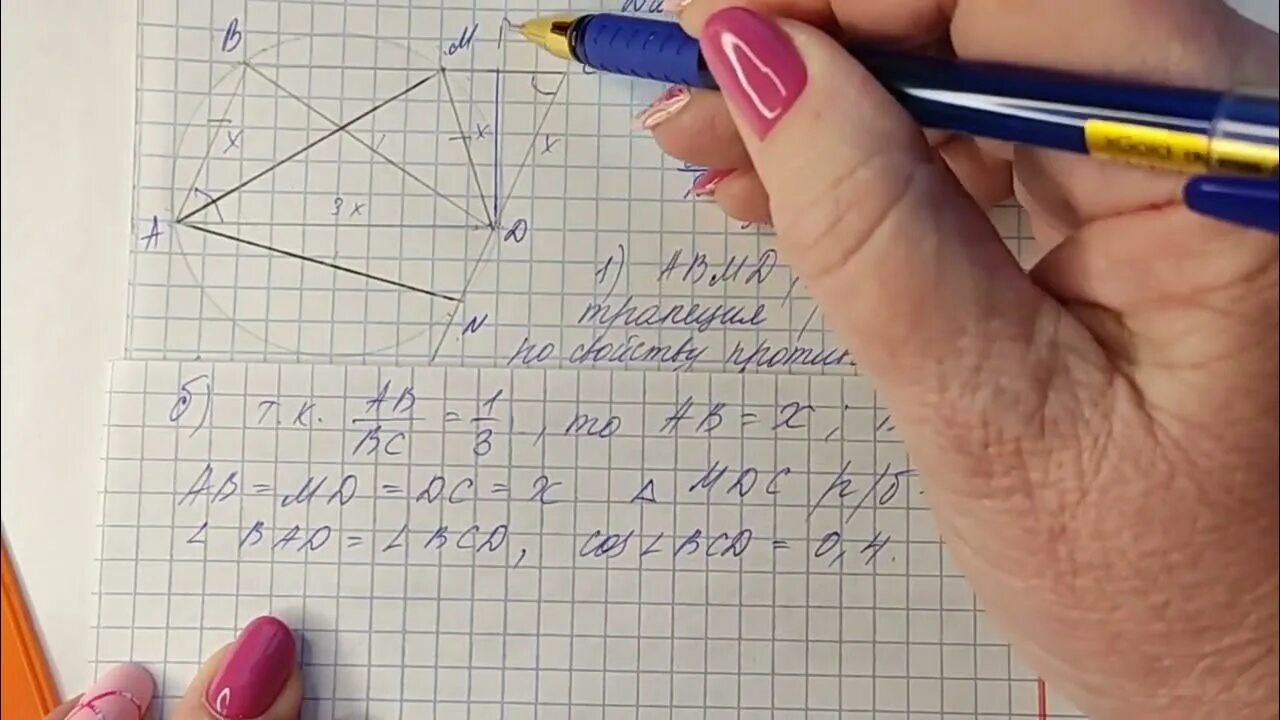 B
M
x
x
x
3x
A
D
N
1) ABMD,
трапеция,
по свойству против
б) т.к. AB/BC = 1/3, то AB = x;
AB = MD = DC = x △ MDC р/б.
∠ BAD = ∠ BCD, cos∠BCD = 0,4.